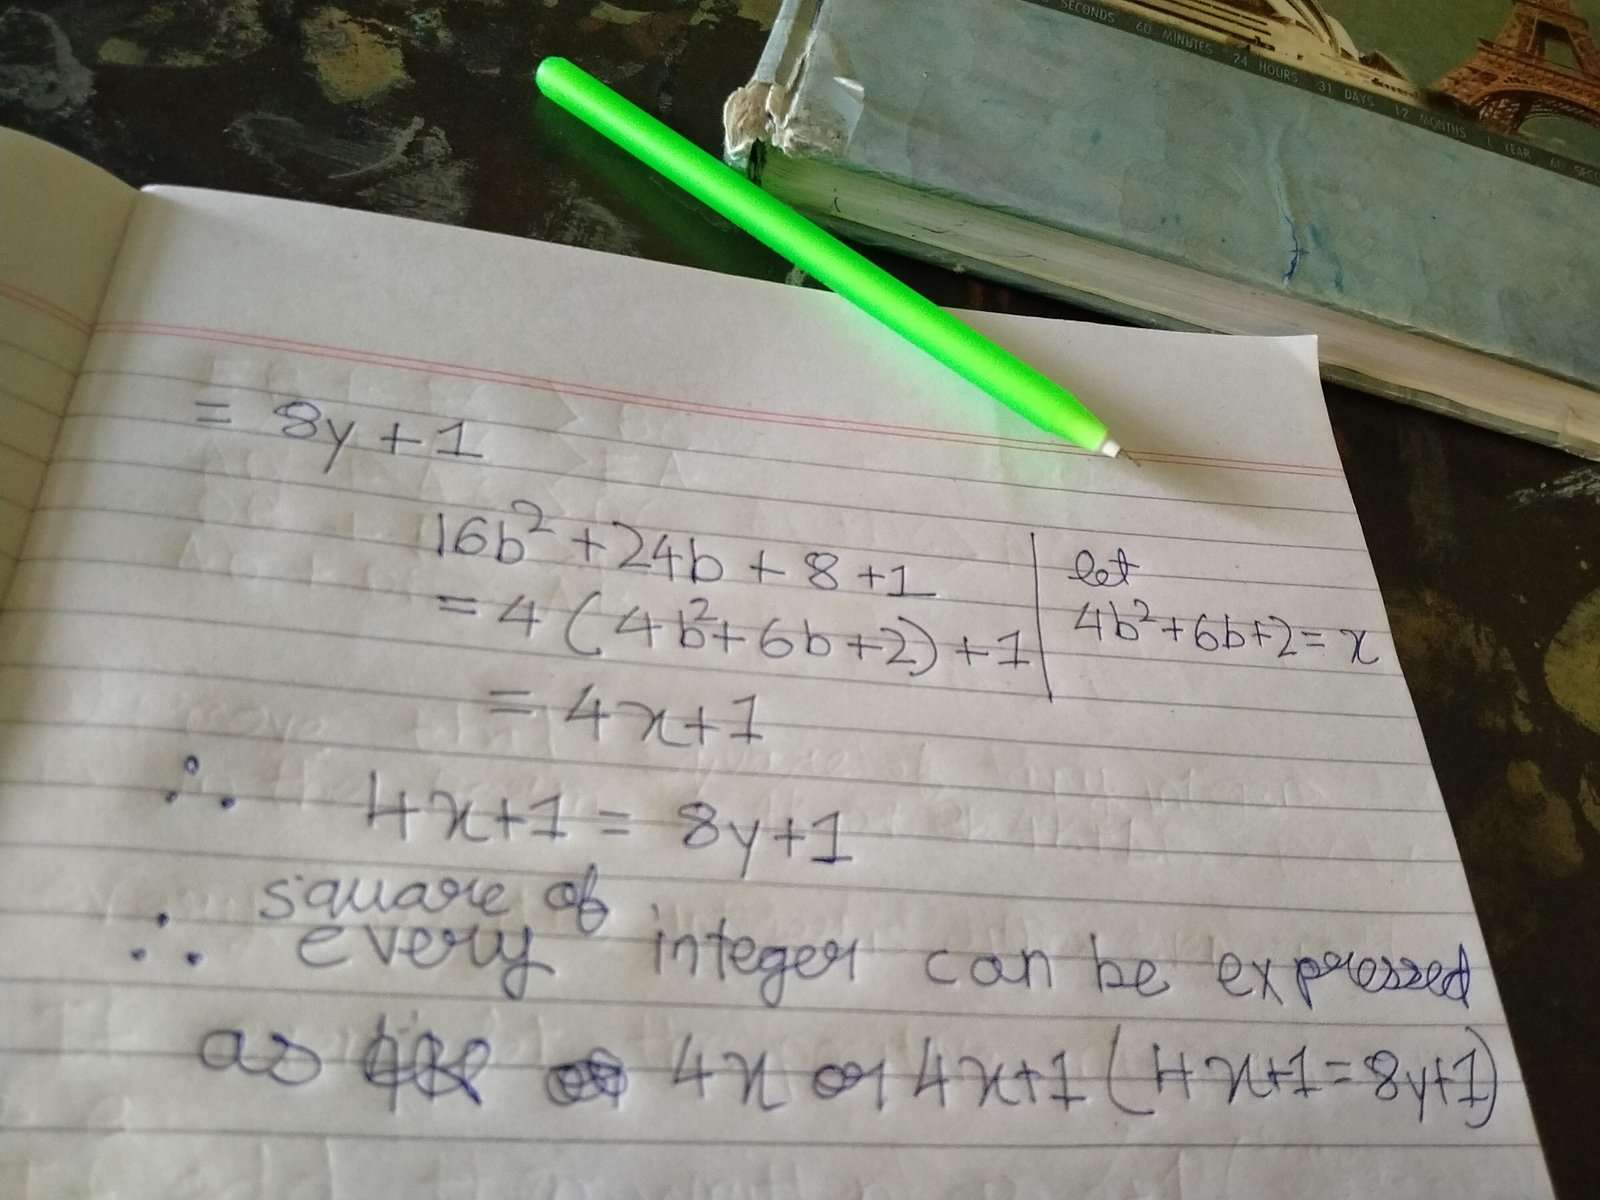 SECONDS 60 MINUTES 24 HOURS 31 DAYS 12 MONTHS 1 YEAR 60 SEC
= 8y + 1
16b² + 24b + 8 + 1
= 4 (4b² + 6b + 2) + 1
= 4x + 1
let
4b² + 6b + 2 = x
∴ 4x + 1 = 8y + 1
square of
∴ every integer can be expressed
as 4x or 4x+1 (4x+1 = 8y+1)